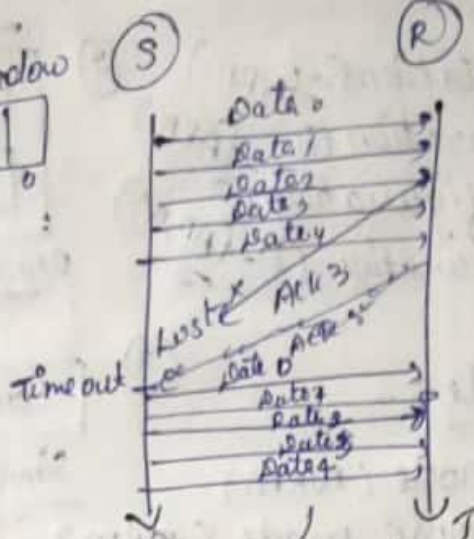 ndow
S
R
0
Data 0
Data 1
Data 2
Data 3
Data 4
Ack 3
Loste
Ack 3
Time out
Data 0
Data 1
Data 2
Data 3
Data 4
I